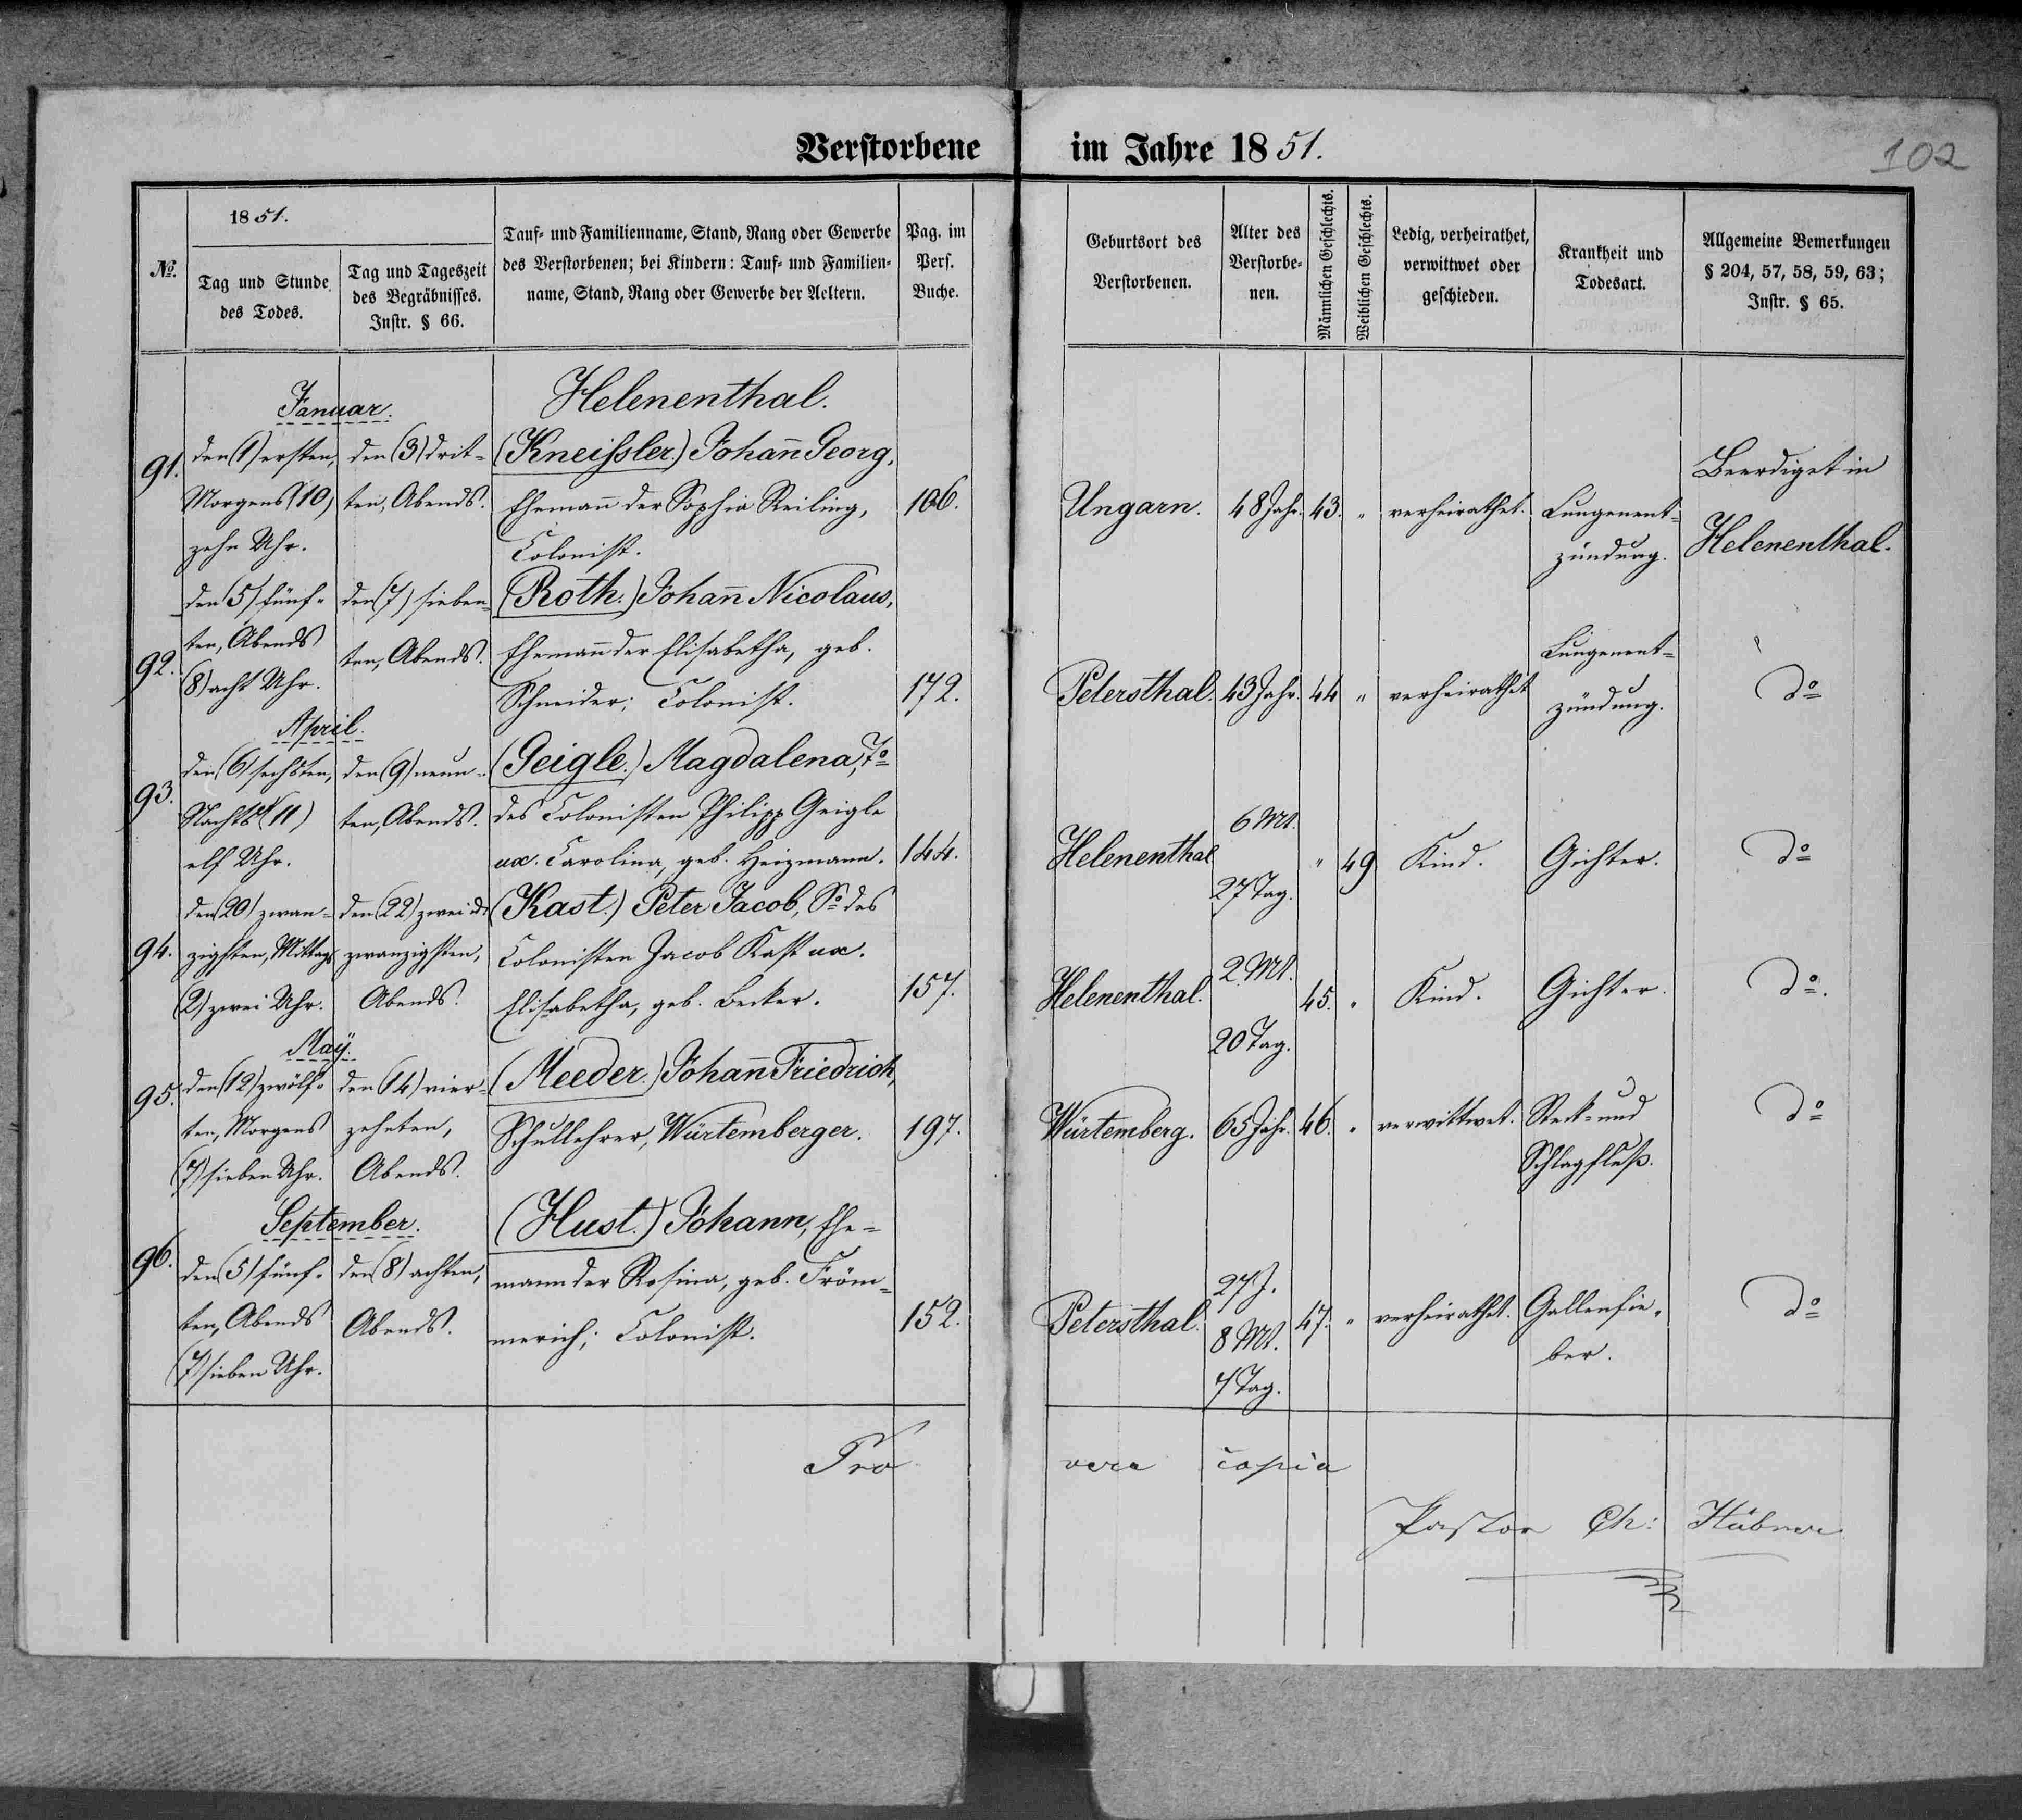 Verstorbene im Jahre 1851.
102
№.
1851.
Tag und Stunde des Todes.
Tag und Tageszeit des Begräbnisses. Instr. § 66.
Tauf- und Familienname, Stand, Rang oder Gewerbe
des Verstorbenen; bei Kindern: Tauf- und Familien-
name, Stand, Rang oder Gewerbe der Aeltern.
Pag. im Pers. Buche.
Geburtsort des Verstorbenen.
Alter des Verstorbe-nen.
Männlichen Geschlechts.
Weiblichen Geschlechts.
Ledig, verheirathet, verwittwet oder geschieden.
Krankheit und Todesart.
Allgemeine Bemerkungen § 204, 57, 58, 59, 63; Instr. § 65.
Januar.
Helenenthal.
91.
den (1) ersten,
Morgens (10)
zehn Uhr.
den (3) drit-
ten, Abends.
(Kneissler.) Johañ Georg,
Ehemañ der Sophia Reiling,
Colonist.
106.
Ungarn.
48 Jahr.
43.
"
verheirathet.
Lungenent-
zündung.
Beerdiget in
Helenenthal.
92.
den (5) fünf-
ten, Abends
(8) acht Uhr.
den (7) sieben-
ten, Abends.
(Roth.) Johañ Nicolaus,
Ehemañ der Elisabetha, geb.
Schneider; Colonist.
172.
Petersthal.
43 Jahr.
44
"
verheirathet
Lungenent-
zündung.
do
April.
93.
den (6) sechsten,
Nachts (11)
elf Uhr.
den (9) neun-
ten, Abends.
(Geigle.) Magdalena, To
des Colonisten Philipp Geigle
ux. Carolina, geb. Heizmann.
144.
Helenenthal
6 Mt.
27 Tag.
"
49
Kind.
Gichter.
do
94.
den (20) zwan-
zigsten, Mittags
(2) zwei Uhr.
den (22) zwei u.
zwanzigsten,
Abends.
(Kast.) Peter Jacob, So des
Colonisten Jacob Kast ux.
Elisabetha, geb. Becker.
157.
Helenenthal.
2 Mt.
20 Tag.
45.
"
Kind.
Gichter.
do.
Maÿ.
95.
den (12) zwölf-
ten, Morgens
(7) sieben Uhr.
den (14) vier-
zehnten,
Abends.
(Meeder.) Johañ Friedrich,
Schullehrer, Würtemberger.
197.
Würtemberg.
65 Jahr.
46.
"
verwittwet.
Steck- und
Schlagfluß.
do
September.
96.
den (5) fünf-
ten, Abends
(7) sieben Uhr.
den (8) achten,
Abends.
(Hust.) Johann, Ehe-
mann der Rosina, geb. Fröm-
merich; Colonist.
152.
Petersthal.
27 J.
8 Mt.
7 Tag.
47.
"
verheirathet.
Gallenfie-
ber.
do
Pro vera copia
Pastor Ch: Hübner